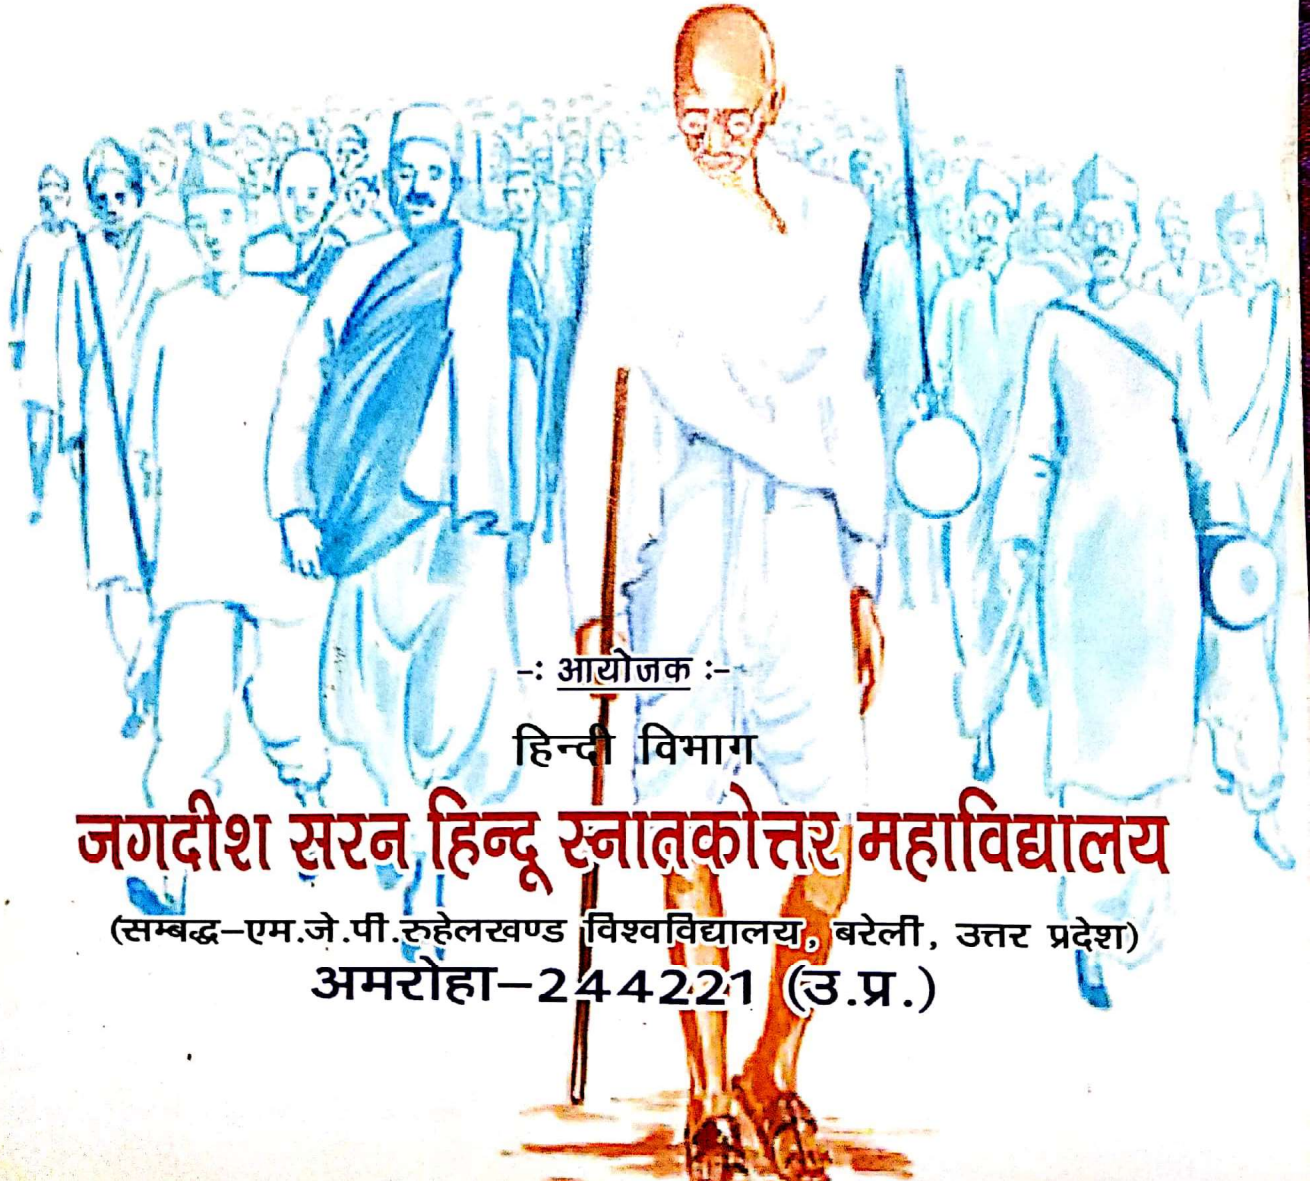 -: आयोजक :-
हिन्दी विभाग
जगदीश सरन हिन्दू स्नातकोत्तर महाविद्यालय
(सम्बद्ध–एम.जे.पी.रुहेलखण्ड विश्वविद्यालय, बरेली, उत्तर प्रदेश)
अमरोहा–244221 (उ.प्र.)